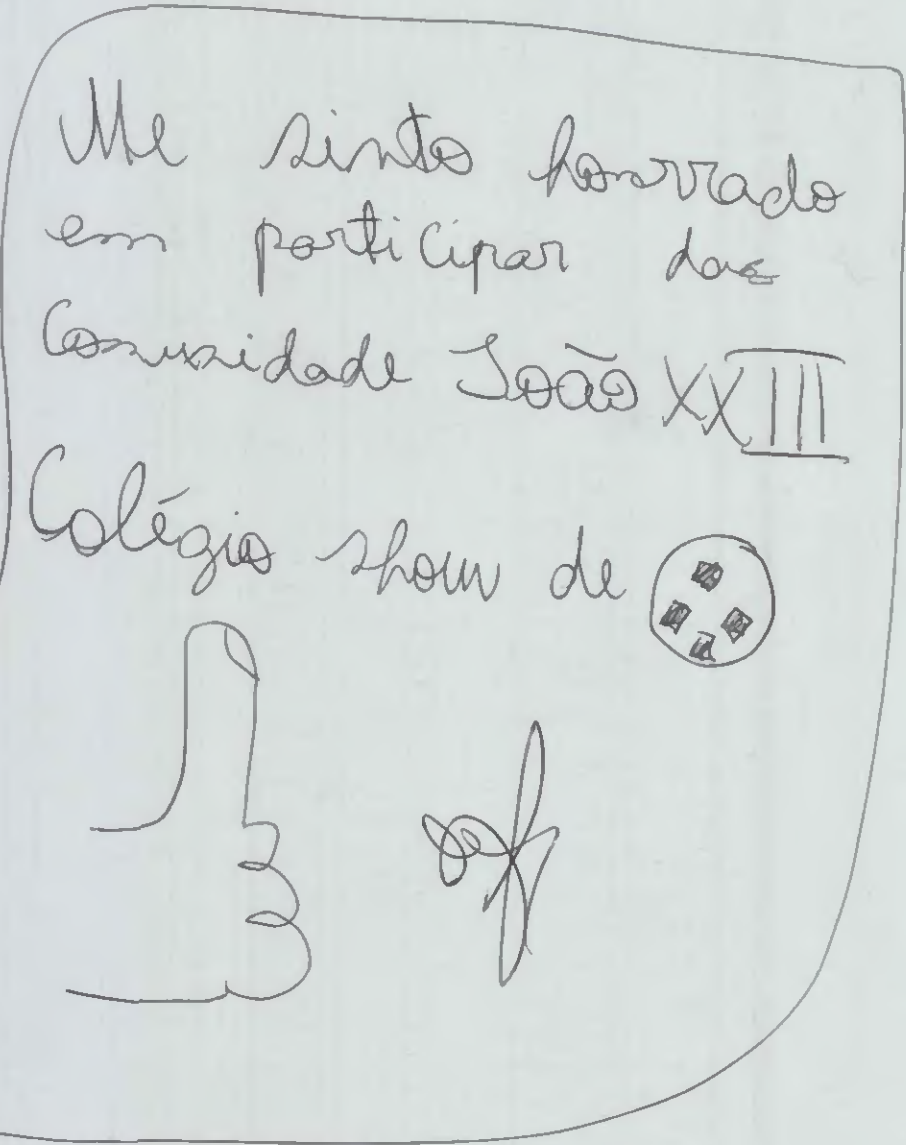 Me sinto honrrado
em participar das
Comunidade João XXIII
Colégio show de